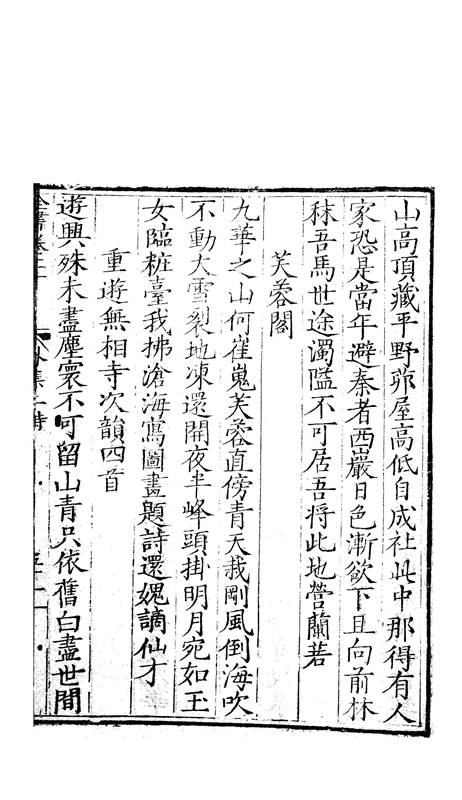 山高頂藏平野茆屋高低自成社此中那得有人
家恐是當年避秦者西巖日色漸欲下且向前林
秣吾馬世途濁隘不可居吾將此地營蘭若
芙蓉閣
九華之山何崔嵬芙蓉直傍青天栽剛風倒海吹
不動大雪裂地凍還開夜半峰頭掛明月宛如玉
女臨粧臺我拂滄海寫圖畫題詩還媿謫仙才
重遊無相寺次韻四首
遊興殊未盡塵寰不可留山青只依舊白盡世間